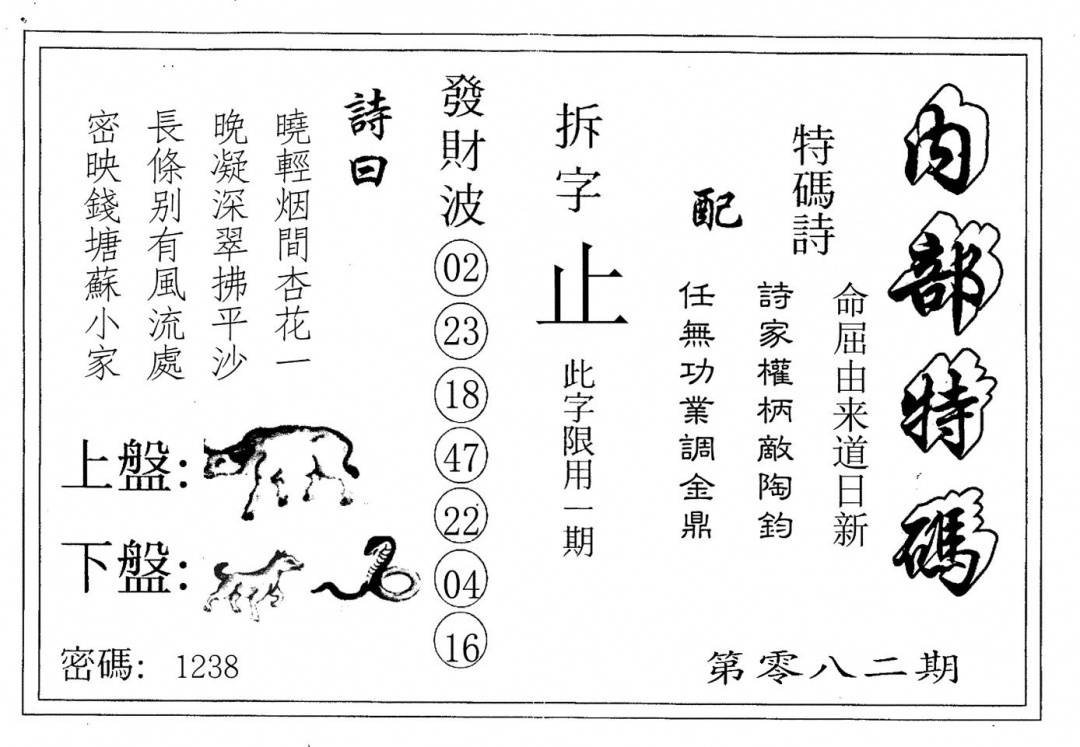 內部特碼
特碼詩
命屈由来道日新
詩家權柄敵陶鈞
任無功業調金鼎
配
第零八二期
拆字
止
此字限用一期
發財波
02
23
18
47
22
04
16
詩曰
曉輕烟間杏花一
晚凝深翠拂平沙
長條别有風流處
密映錢塘蘇小家
上盤:
下盤:
密碼: 1238